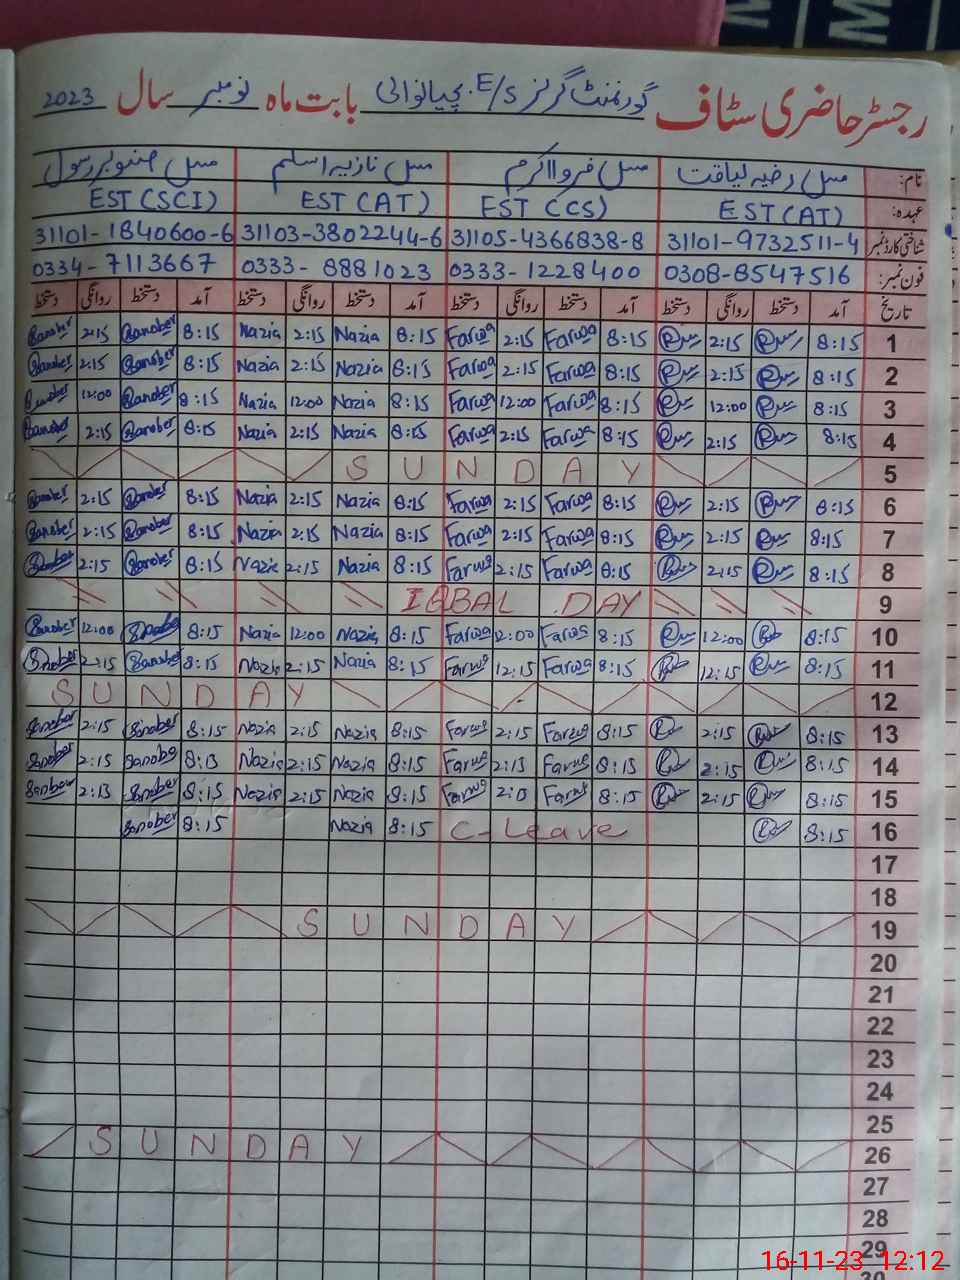 رجسٹر حاضری سٹاف گورنمنٹ گرلز E/S. چیانوالی بابت ماہ نومبر سال 2023
نام: مس رضیہ لیاقت مس فروا اکرم مس نازیہ اسلم مس صنوبر رسول
عہدہ: EST (AT) EST (CS) EST (AT) EST (SCI)
شناختی کارڈ نمبر 31101-9732511-4 31105-4366838-8 31103-3802244-6 31101-1840600-6
فون نمبر: 0308-8547516 0333-1228400 0333-8881023 0334-7113667
تاریخ آمد دستخط روانگی دستخط آمد دستخط روانگی دستخط آمد دستخط روانگی دستخط آمد دستخط روانگی دستخط
1 8:15 2:15 8:15 Farwa 2:15 Farwa 8:15 Nazia 2:15 Nazia 8:15 Sanober 2:15 Sanober
2 8:15 2:15 8:15 Farwa 2:15 Farwa 8:15 Nazia 2:15 Nazia 8:15 Sanober 2:15 Sanober
3 8:15 12:00 8:15 Farwa 12:00 Farwa 8:15 Nazia 12:00 Nazia 8:15 Sanober 12:00 Sanober
4 8:15 2:15 8:15 Farwa 2:15 Farwa 8:15 Nazia 2:15 Nazia 8:15 Sanober 2:15 Sanober
5 SUNDAY
6 8:15 2:15 8:15 Farwa 2:15 Farwa 8:15 Nazia 2:15 Nazia 8:15 Sanober 2:15 Sanober
7 8:15 2:15 8:15 Farwa 2:15 Farwa 8:15 Nazia 2:15 Nazia 8:15 Sanober 2:15 Sanober
8 8:15 2:15 8:15 Farwa 2:15 Farwa 8:15 Nazia 2:15 Nazia 8:15 Sanober 2:15 Sanober
9 IQBAL DAY
10 8:15 12:00 8:15 Farwa 12:00 Farwa 8:15 Nazia 12:00 Nazia 8:15 Sanober 12:00 Sanober
11 8:15 12:15 8:15 Farwa 12:15 Farwa 8:15 Nazia 2:15 Nazia 8:15 Sanober 2:15 Sanober
12 SUNDAY
13 8:15 2:15 8:15 Farwa 2:15 Farwa 8:15 Nazia 2:15 Nazia 8:15 Sanober 2:15 Sanober
14 8:15 2:15 8:15 Farwa 2:15 Farwa 8:15 Nazia 2:15 Nazia 8:15 Sanober 2:15 Sanober
15 8:15 2:15 8:15 Farwa 2:15 Farwa 8:15 Nazia 2:15 Nazia 8:15 Sanober 2:15 Sanober
16 8:15 C-Leave 8:15 Nazia 8:15 Sanober
17
18
19 SUNDAY
20
21
22
23
24
25
26 SUNDAY
27
28
29
30
16-11-23 12:12